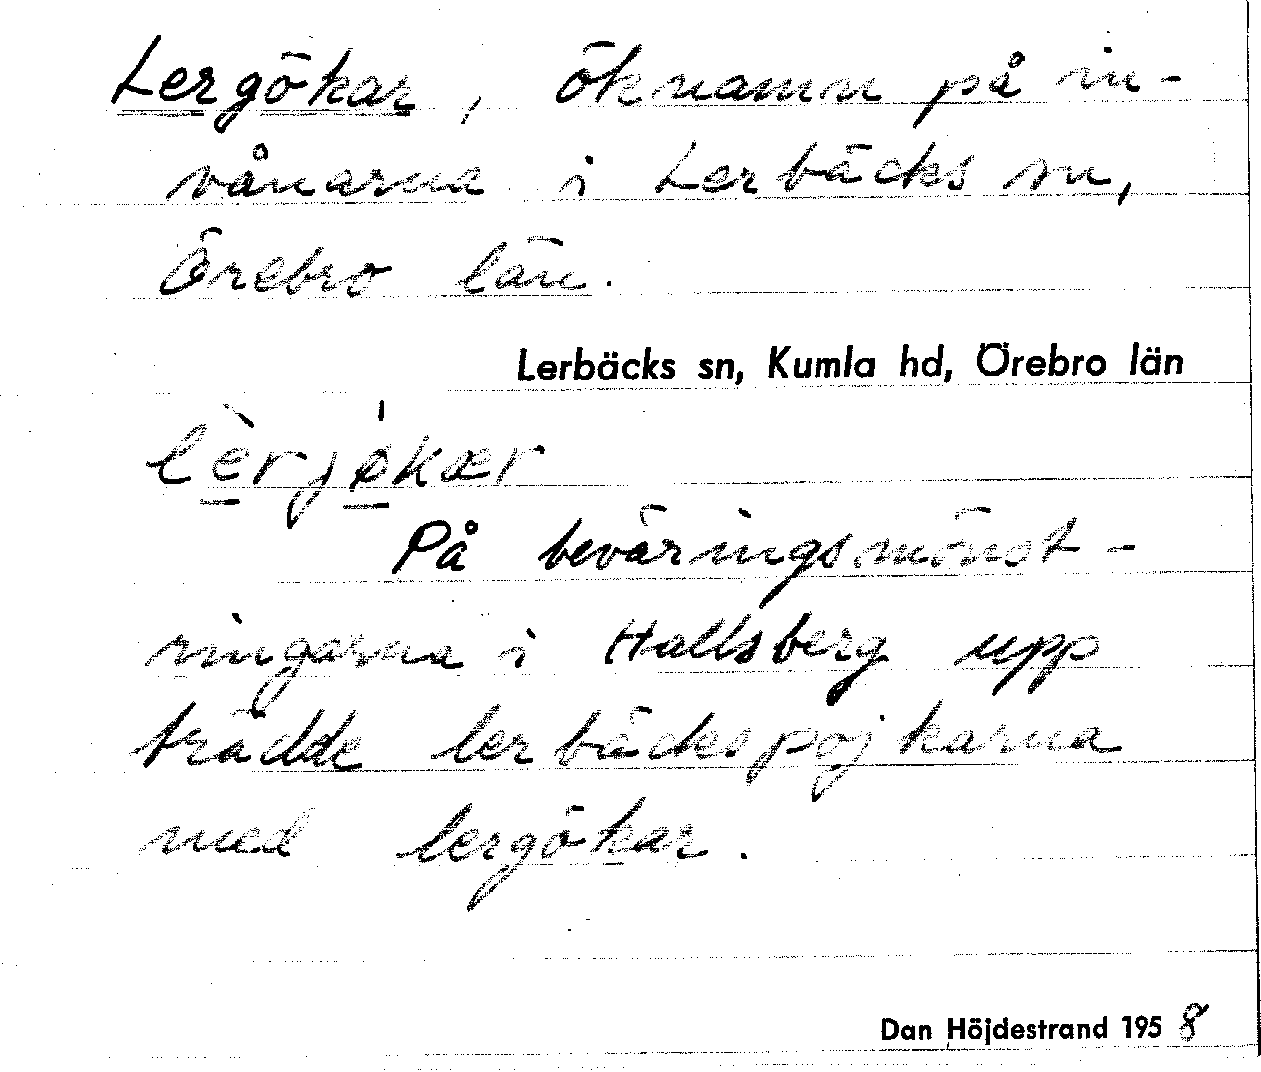 Lergökar, öknamn på in-
vånarna i Lerbäcks sn,
Örebro län.
Lerbäcks sn, Kumla hd, Örebro län
lèrjø̍kær
På beväringsmönst-
ringarna i Hallsberg upp
trädde lerbäckspojkarna
med lergökar.
Dan Höjdestrand 1958